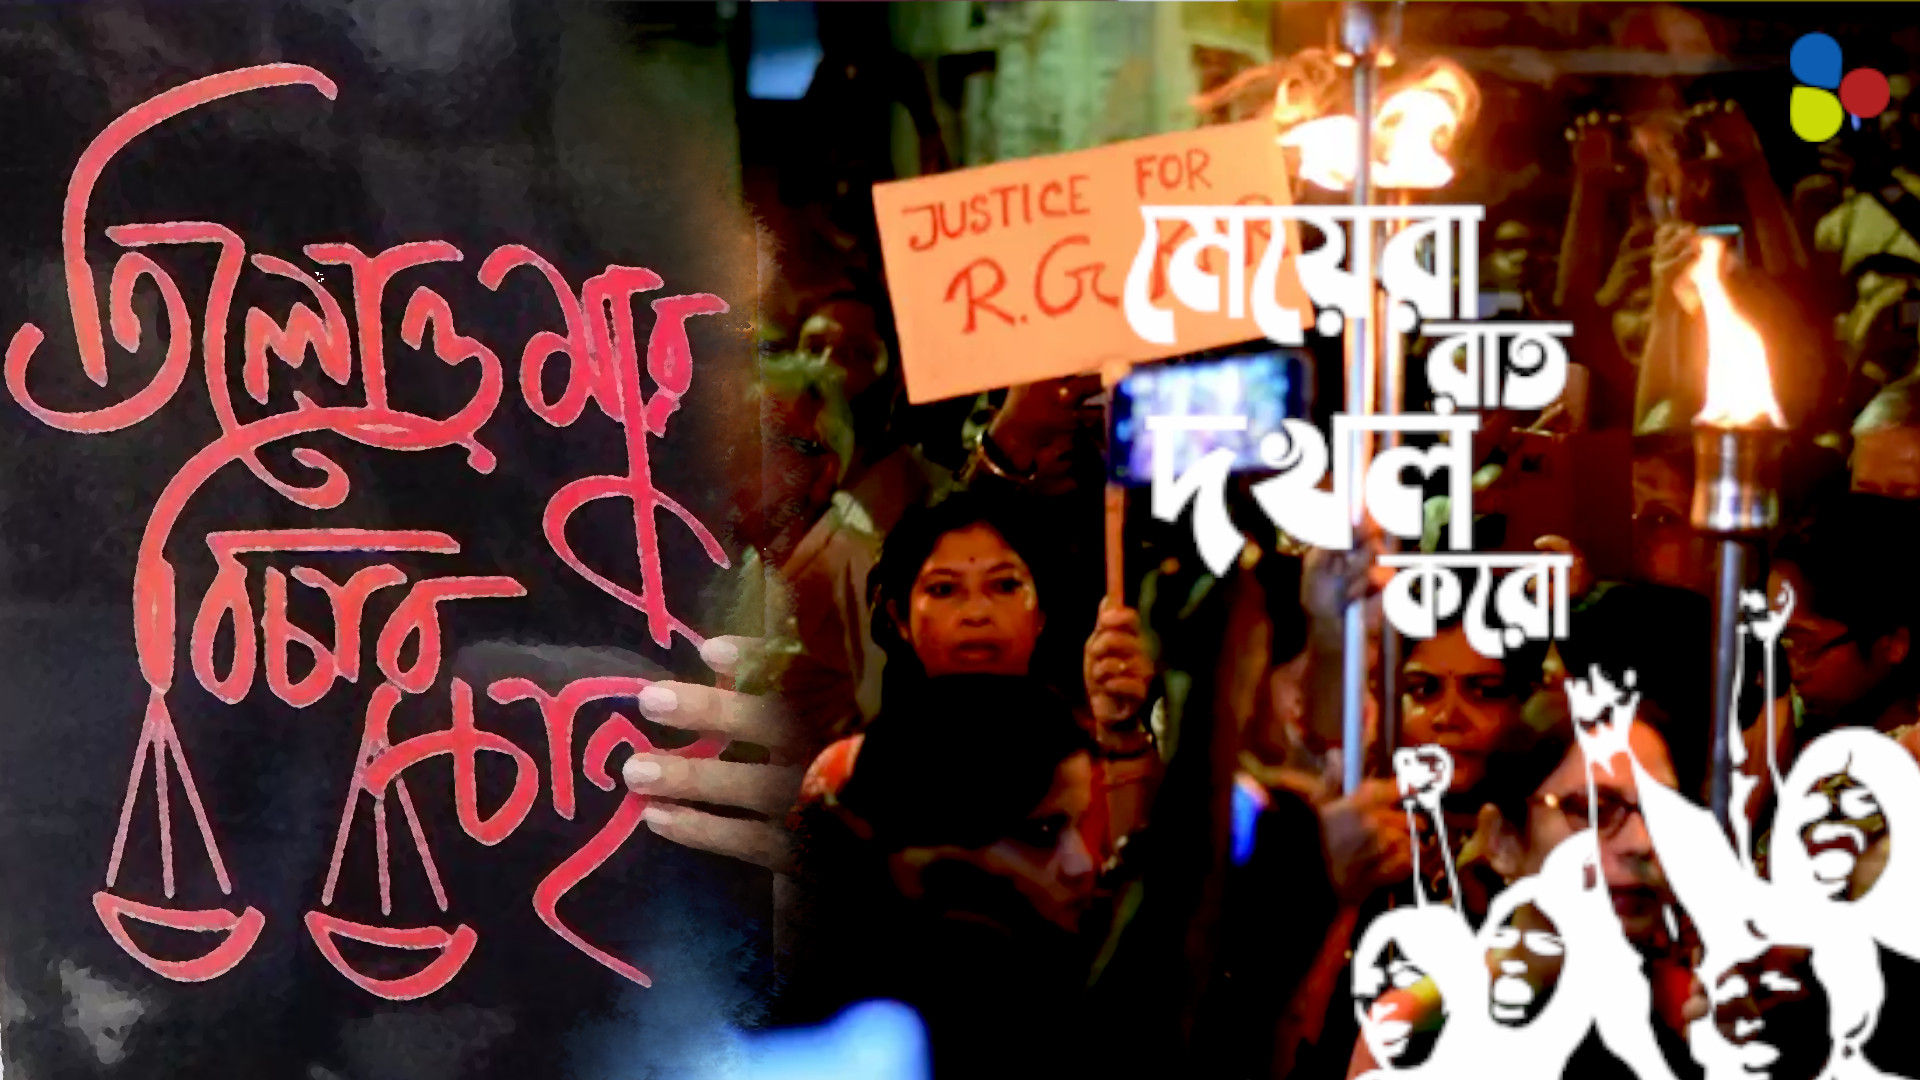 তিলোত্তমার
বিচার
চাই
JUSTICE FOR
R.G KAR
মেয়েরা
রাত
দখল
করো